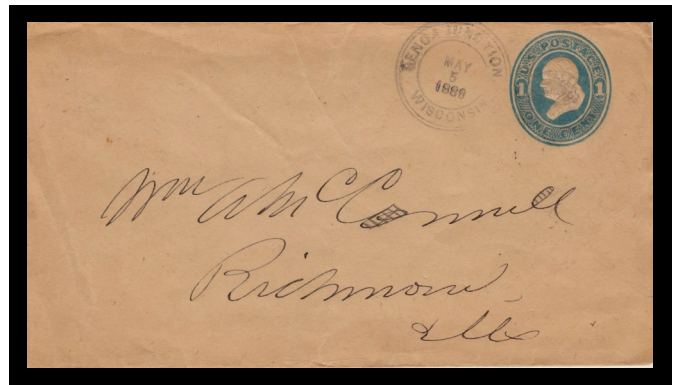 GENOA JUNCTION
MAY
5
1889
WISCONSIN
U.S. POSTAGE
1 1
ONE CENT
Wm A McConnell
Richmond
Ills